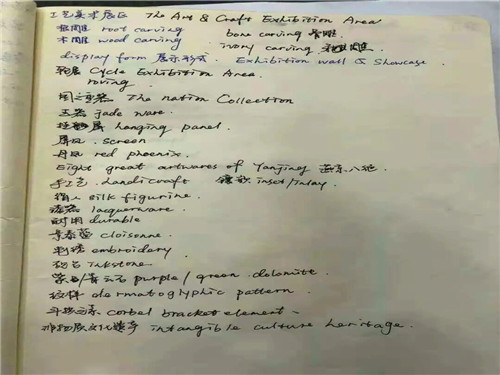 工艺美术展区 The Art & Craft Exhibition Area
根雕 root carving bone carving 骨雕
木雕 wood carving ivory carving 牙雕
display form 展示形式. Exhibition wall & Showcase
轮展 Cycle Exhibition Area
roving
国之重器 The nation Collection
玉器 jade ware.
挂屏 hanging panel.
屏风. screen
丹凤 red phoenix.
Eight great artwares of Yanjing 燕京八绝
手工艺. handicraft 镶嵌 inset/inlay
绢人 silk figurine.
漆器 lacquerware.
耐用 durable
景泰蓝 cloisonne.
刺绣 embroidary
砚台 inkstone
紫/青云石 purple/green dolomite
纹样 dermatoglyphic pattern.
斗拱元素 corbel bracket element.
非物质文化遗产 intangible culture heritage.